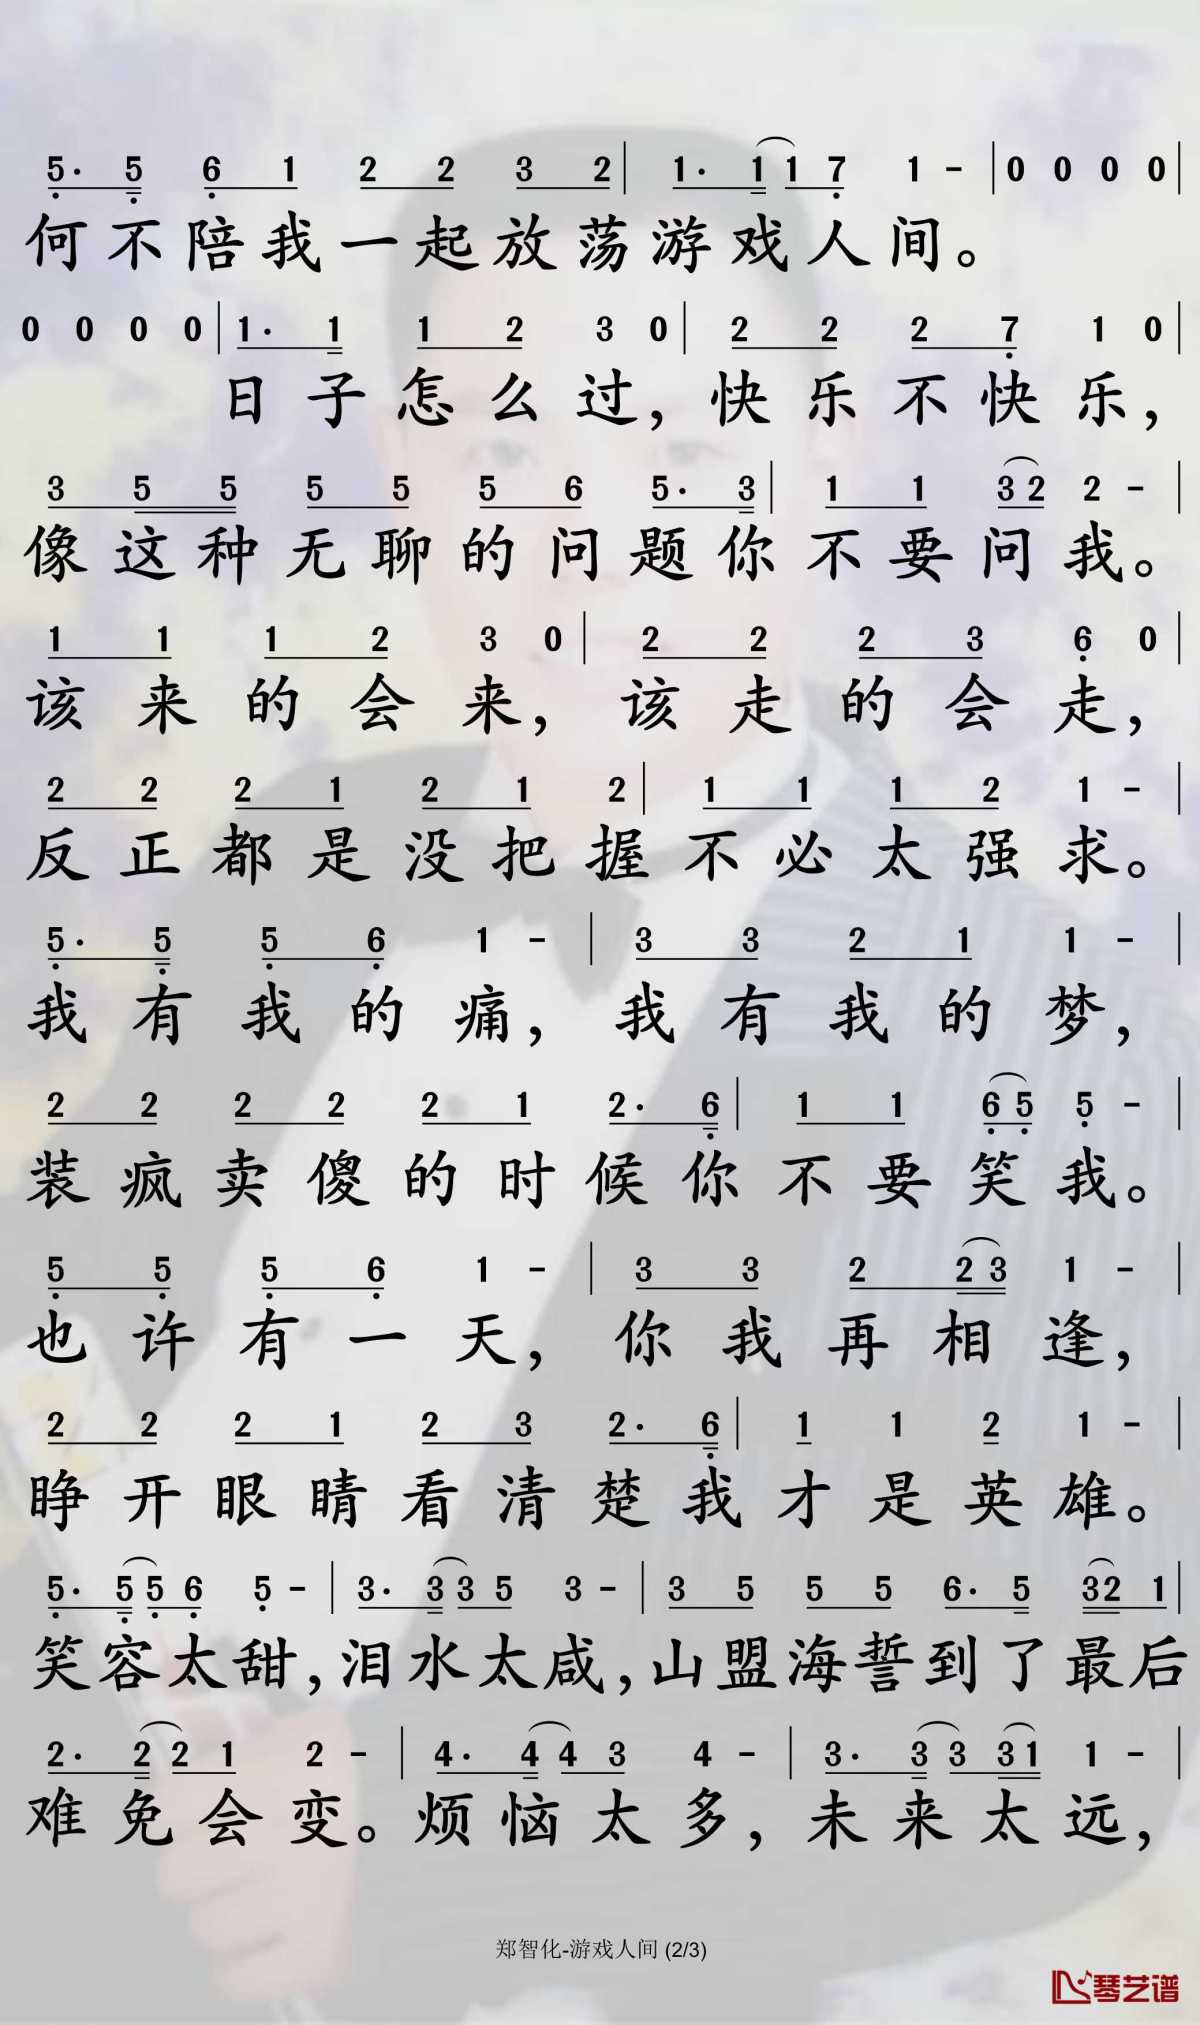 5. 5 6 1 2 2 3 2 | 1. 1 1 7 1 - | 0 0 0 0 |
何不陪我一起放荡游戏人间。
0 0 0 0 | 1. 1 1 2 3 0 | 2 2 2 7 1 0 |
日子怎么过，快乐不快乐，
3 5 5 5 5 5 6 5. 3 | 1 1 3 2 2 - |
像这种无聊的问题你不要问我。
1 1 1 2 3 0 | 2 2 2 3 6 0 |
该来的会来，该走的会走，
2 2 2 1 2 1 2 | 1 1 1 2 1 - |
反正都是没把握不必太强求。
5. 5 5 6 1 - | 3 3 2 1 1 - |
我有我的痛，我有我的梦，
2 2 2 2 2 1 2. 6 | 1 1 6 5 5 - |
装疯卖傻的时候你不要笑我。
5 5 5 6 1 - | 3 3 2 2 3 1 - |
也许有一天，你我再相逢，
2 2 2 1 2 3 2. 6 | 1 1 2 1 - |
睁开眼睛看清楚我才是英雄。
5. 5 5 6 5 - | 3. 3 3 5 3 - | 3 5 5 5 6. 5 3 2 1 |
笑容太甜，泪水太咸，山盟海誓到了最后
2. 2 2 1 2 - | 4. 4 4 3 4 - | 3. 3 3 3 1 1 - |
难免会变。烦恼太多，未来太远，
郑智化-游戏人间 (2/3)
琴艺谱